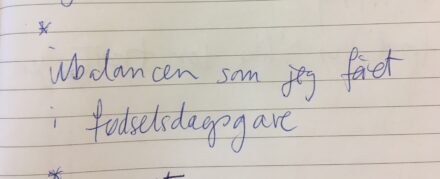 *
ubalancen som jeg fået
i fødselsdagsgave
*